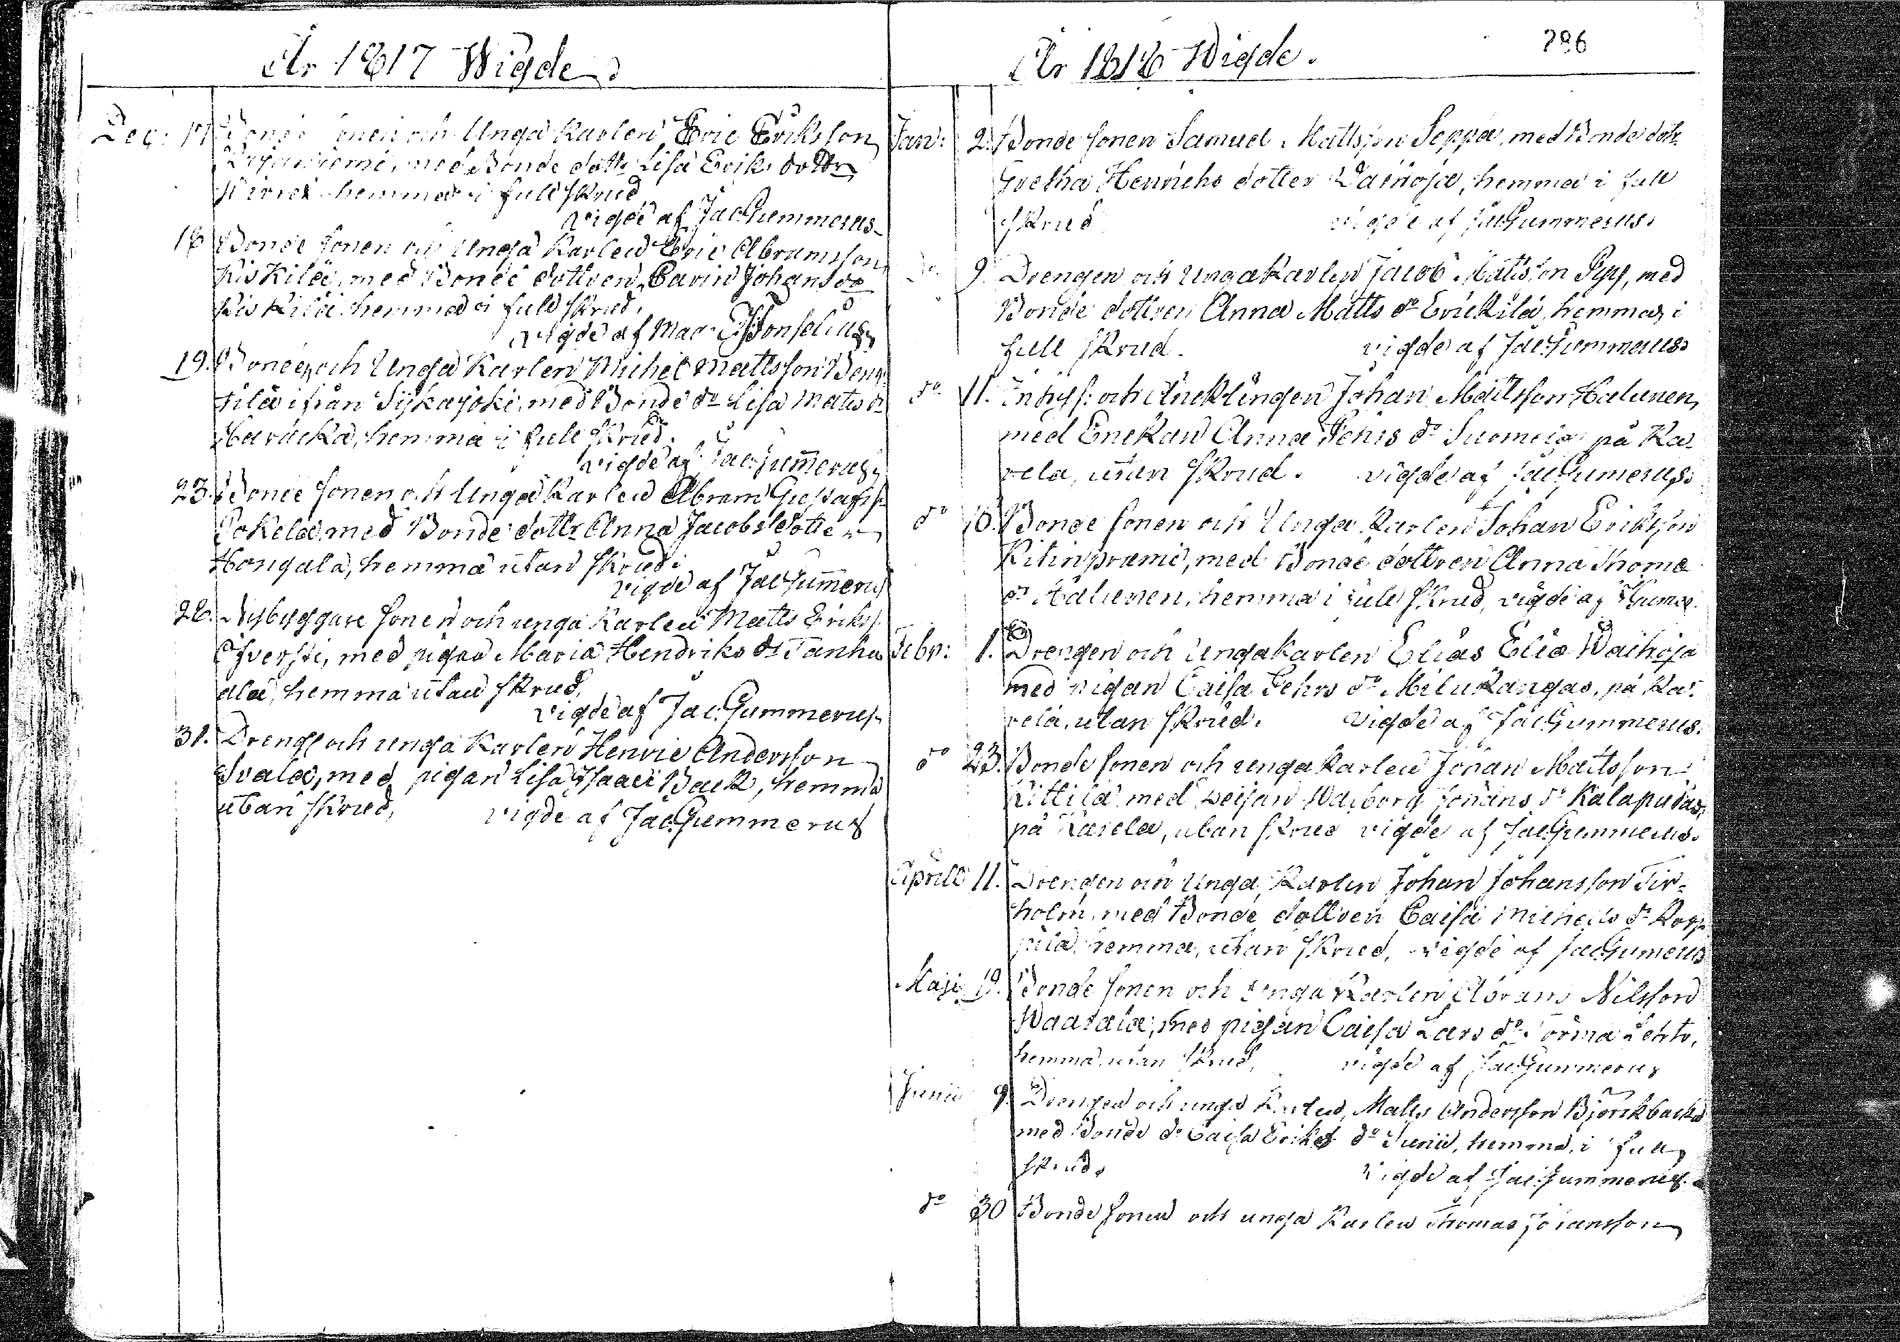 År 1817 Wigde
Dec: 17. Bonde sonen och Unga Karlen Eric Eriksson
med Bonde dottr Lisa Eriks dottr
hemma i full skrud
vigde af Jac Gummerus
18 Bonde sonen och Unga Karlen Eric Abramsson
Kiskilä, med Bonde dottren Carin Johans dr
Kiskilä hemma i full skrud.
vigde af Mag:
19. Bonden och Unga Karlen Michel Mattsson
tilä ifrån Sijkajoki, med Bonde dr Lisa Mats dr
Haracka, hemma i full skrud.
vigde af Jac Gum̄erus
23. Bonde sonen och Unga Karlen Abram Gustafss:
Pokela, med Bonde dottr Anna Jacobs dotter
Hongala, hemma utan skrud.
vigde af Jac Gum̄erus
28. Nybyggare sonen och unga Karlen Matts Erikss:
Öfversti, med pigan Maria Hendriks dr Tanhu
ala, hemma utan skrud,
vigde af Jac. Gummerus
31. Drenge och unga Karlen Henric Andersson
Svala, med pigan Lisa Isaaci Back, hemma
utan skrud, vigde af Jac. Gummerus
År 1818 Wigde. 286
Jan: 2. Bonde sonen Samuel Mattsson Seppä, med Bonde dotr
Gretha Henrichs dotter Wainoja, hemma i full
skrud vigde af Jac Gummerus.
Do 9. Drengen och Unga Karlen Jacob Mattsson Pyy, med
Bonde dottren Anna Matts dr Erickilä, hemma, i
full skrud. vigde af Jac. Gummerus
do 11. Inhys: och Encklingen Johan Mattsson Halunen,
med Enckan Anna dr Suomela på Ka-
vela, utan skrud. vigde af Jac Gumerus.
do 18. Bonde sonen och Unga Karlen Johan Eriksson
med Bonde dottren Anna Thoma
dr Halunen, hemma i full skrud, vigde af
Febr: 1. Drengen och Unga Karlen Elias Eliæ Waihoja
med pigan Caisa dr Milukangas, på Ka-
vela, utan skrud. vigde af Jac Gummerus.
do 23. Bonde sonen och unga karlen Johan Mattsson
Kittilä med peigan Walborg Johans dr Kalapudas,
på Kavela, utan skrud vigde af Jac Gummerus.
Aprill 11. Drengen och Unga Karlen Johan Johansson Tir-
holm, med Bonde dottren Caisa Michels dr Korp-
pila hemma, utan skrud, vigde af Jac Gumerus
Maji 19. Bonde sonen och Unga Karlen Abram Nilsson
Waarala, med pigan Caisa Lars dr Törmä Lehto,
hemma utan skrud, vigde af Jac Gummerus
Junii 9. Drengen och unga Karlen, Matts Andersson Björckbacka
med Bonde dr Caisa Eriks dr Junii, hemma, i full
skrud. vigde af Jac. Gummerus.
do 30 Bonde sonen och unga Karlen Thomas Johansson